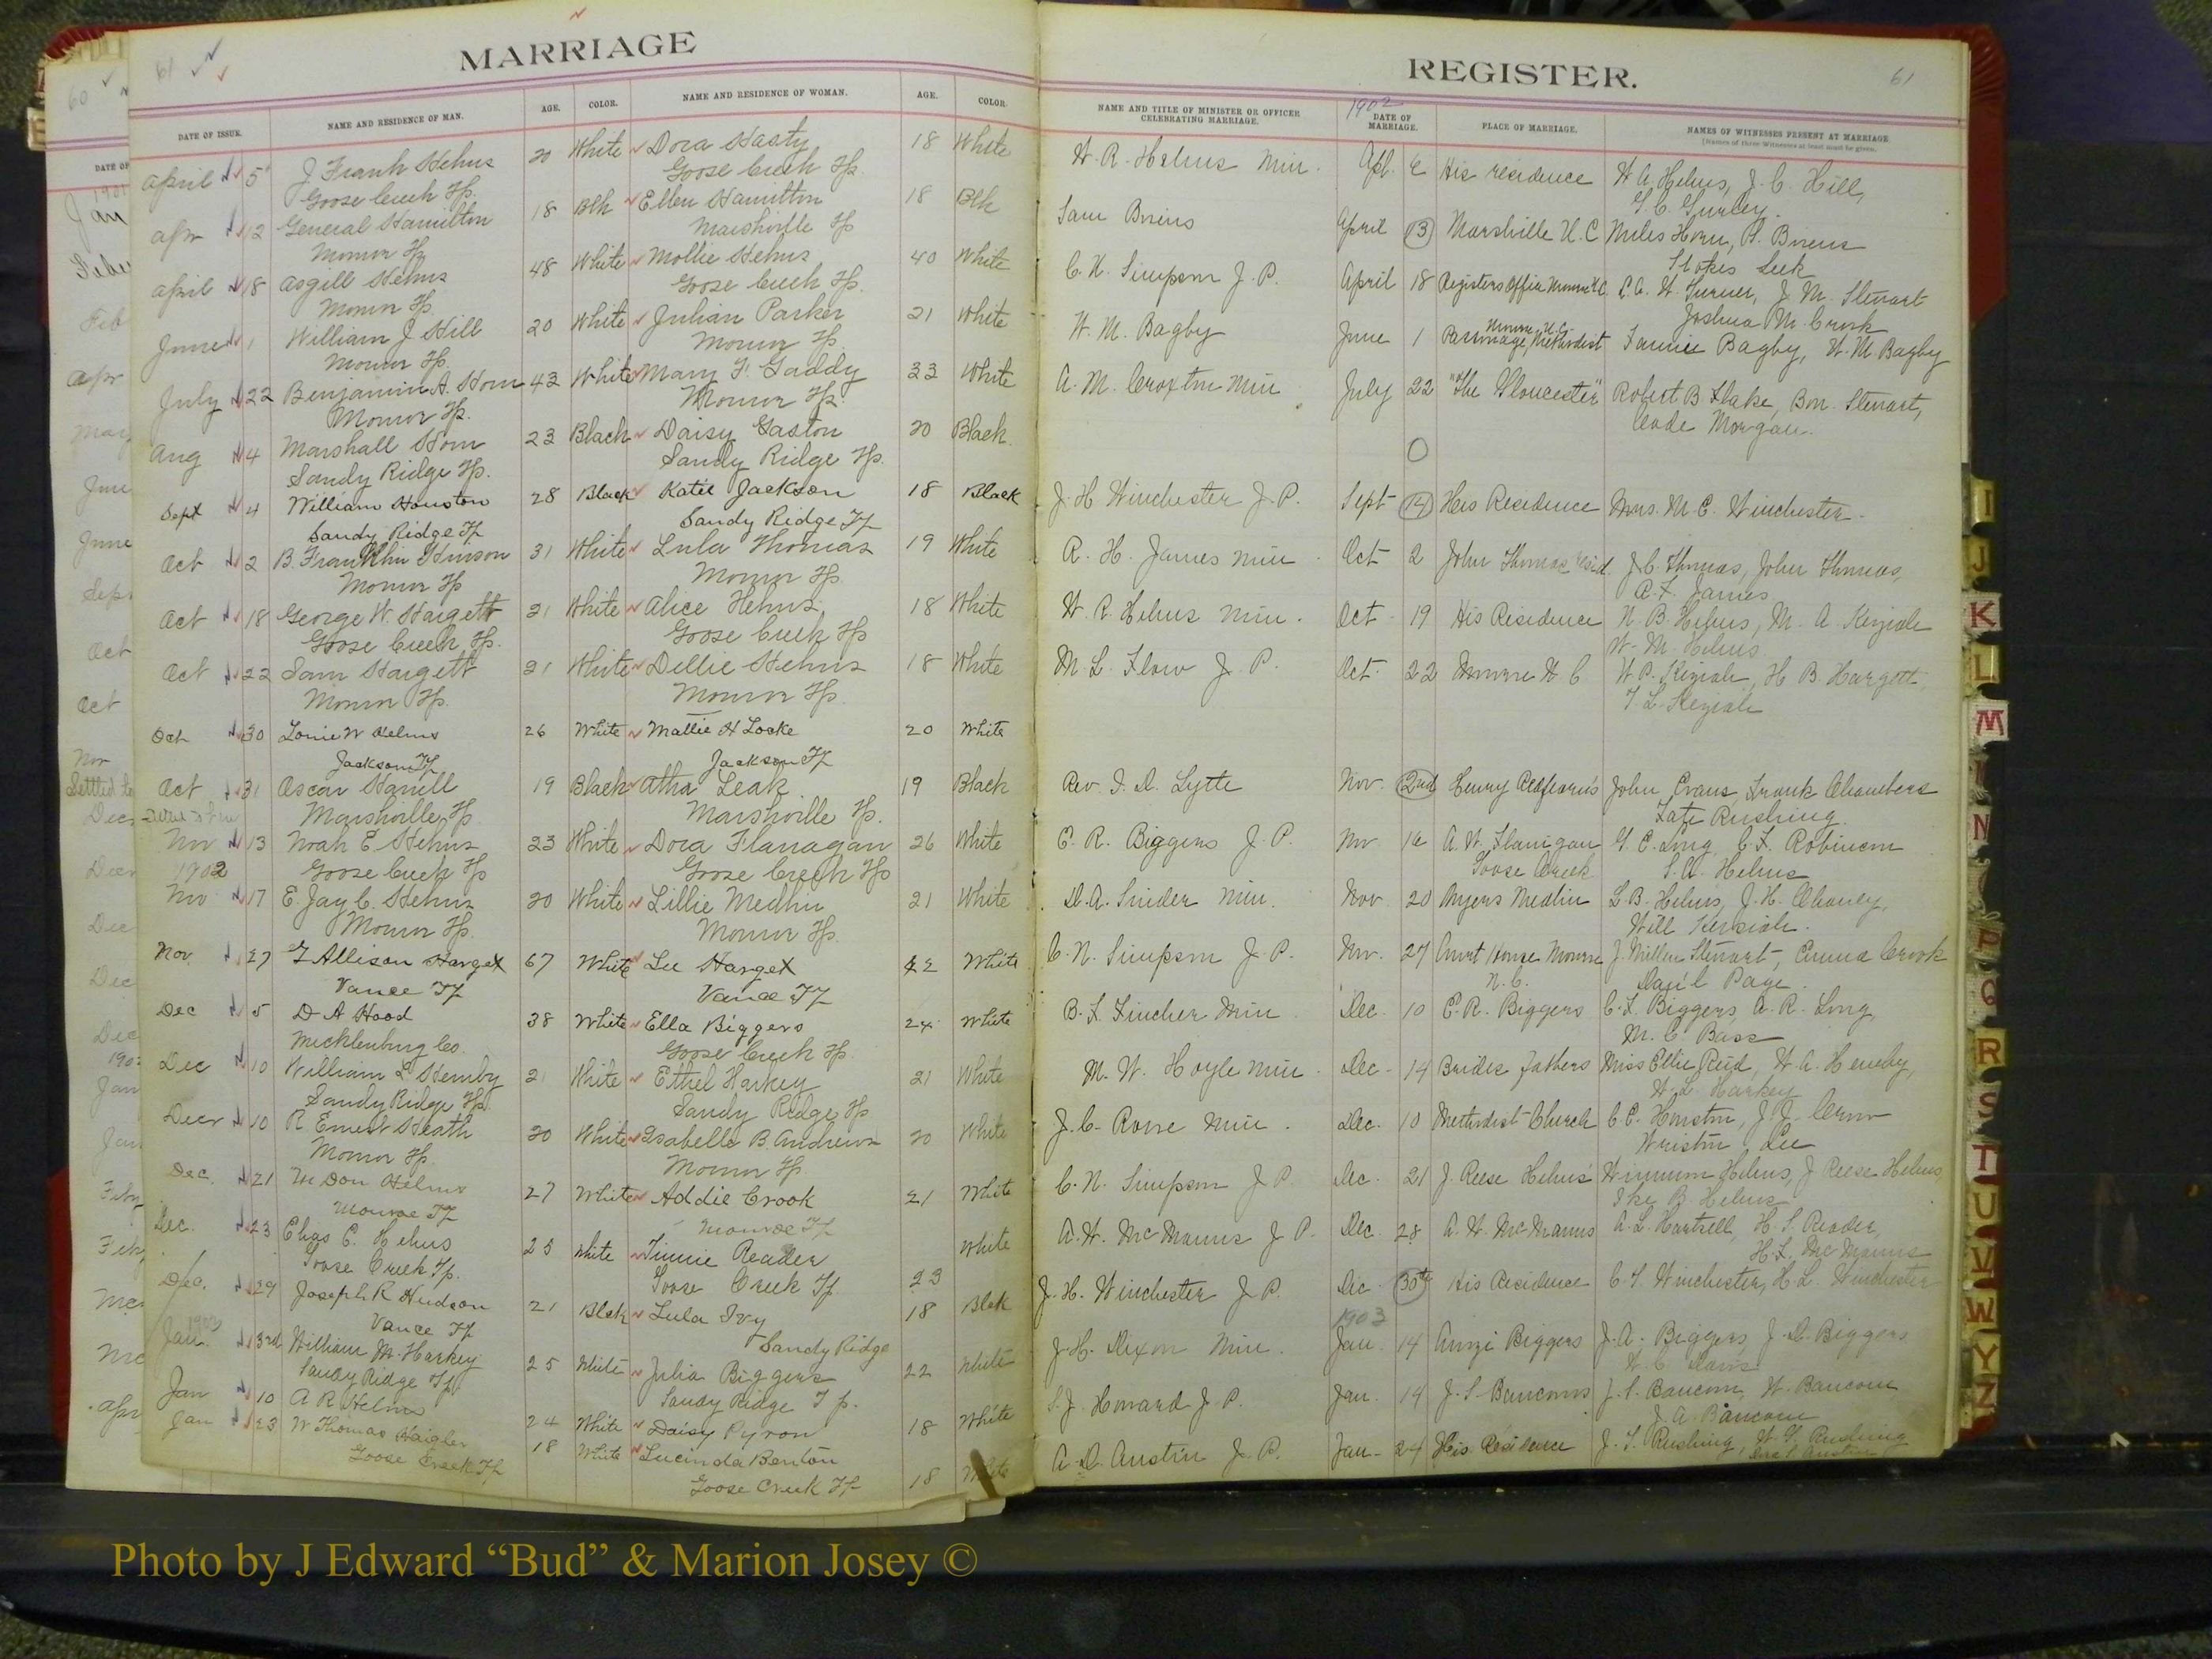 MARRIAGE
61
DATE OF ISSUE.
NAME AND RESIDENCE OF MAN.
AGE.
COLOR.
NAME AND RESIDENCE OF WOMAN.
AGE.
COLOR.
April 5 J Frank Helms 20 White Dora Hasty 18 White
Goose Creek Tp. Goose Creek Tp.
Apr 12 General Hamilton 18 Blk Ellen Hamilton 18 Blk
Monroe Tp Marshville Tp
April 18 Asgill Helms 48 White Mollie Helms 40 White
Monroe Tp. Goose Creek Tp.
June 1 William J Hill 20 White Julian Parker 21 White
Monroe Tp. Monroe Tp.
July 22 Benjamin A. Horn 43 White Mary F. Gaddy 33 White
Monroe Tp. Monroe Tp.
Aug 4 Marshall Horn 23 Black Daisy Gaston 20 Black
Sandy Ridge Tp. Sandy Ridge Tp.
Sept 4 William Houston 28 Black Katie Jackson 18 Black
Sandy Ridge Tp Sandy Ridge Tp
Oct 2 B. Franklin Hinson 31 White Lula Thomas 19 White
Monroe Tp Monroe Tp.
Oct 18 George W. Hargett 21 White Alice Helms 18 White
Goose Creek Tp. Goose Creek Tp
Oct 22 Sam Hargett 21 White Dellie Helms 18 White
Monroe Tp. Monroe Tp.
Oct 30 Lonie W Helms 26 White Mattie H Locke 20 White
Jackson Tp Jackson Tp
Oct 31 Oscar Harrell 19 Black Atha Leak 19 Black
Marshville Tp. Marshville Tp.
Nov 13 Noah E Helms 23 White Dora Flanagan 26 White
1902 Goose Creek Tp Goose Creek Tp
Nov 17 E. Jay C. Helms 20 White Lillie Medlin 21 White
Monroe Tp. Monroe Tp.
Nov. 27 Allison Harget 67 White Lee Harget 42 White
Vance Tp Vance Tp
Dec 5 D A Hood 38 White Ella Biggers 24 White
Mecklenburg Co. Goose Creek Tp.
Dec 10 William L Hemby 21 White Ethel Harkey 21 White
Sandy Ridge Tp. Sandy Ridge Tp
Decr 10 R Ernest Heath 20 White Isabelle B. Andrews 20 White
Monroe Tp. Monroe Tp.
Dec. 21 Don Helms 27 White Addie Crook 21 White
Monroe Tp Monroe Tp
Dec. 23 Chas C. Helms 25 White Tinnie Reader 23 White
Goose Creek Tp. Goose Creek Tp
Dec. 29 Joseph R Hudson 21 Blck Lula Ivy 18 Blck
Vance Tp Sandy Ridge
1903
Jan. 3rd William M. Harkey 25 White Julia Biggers 22 White
Sandy Ridge Tp. Sandy Ridge Tp.
Jan 10 A R Helms 24 White Daisy Pyron 18 White
Jan 23 W Thomas Haigler 18 White Lucinda Benton 18 White
Goose Creek Tp Goose Creek Tp
REGISTER.
61
NAME AND TITLE OF MINISTER OR OFFICER CELEBRATING MARRIAGE.
1902
DATE OF MARRIAGE.
PLACE OF MARRIAGE.
NAMES OF WITNESSES PRESENT AT MARRIAGE
[Names of three Witnesses at least must be given.
W. R. Helms Min. Apl. 6 His residence W A. Helms, J. C. Hill,
Sam April 13 Marshville N. C Miles Horn,
C. N. Simpson J. P. April 18 Registers Office Monroe N.C. W. Turner, J. M. Stewart
W. M. Bagby June 1 Parsonage, Methodist Fannie Bagby, W. M Bagby
A. M. Croxton Min July 22 "The Gloucester" Robert B Flake, Ben. Stewart,
Morgan.
J. H Winchester J. P. Sept 14 His Residence Mrs. M. C. Winchester.
R. H. James Min Oct 2 John Thomas resid J. C. Thomas, John Thomas,
R. F. James
W. R. Helms Min. Oct 19 His Residence N. B. Helms, M. A. Keziah
W. M. Helms
M L Flow J. P. Oct. 22 Monroe N C W. P. Keziah, H B. Hargett,
T. L. Keziah
Rev. I. D. Lytle Nov. 2nd Henry John Evans, Frank Chambers
Tate Rushing.
E. R. Biggers J. P. Nov 16 A. W. Flanigan G. C. Long, C. F. Robinson
Goose Creek S. A. Helms
D. A. Snider Min. Nov. 20 Myers Medlin L. B. Helms, J. H. Chaney,
Will Keziah.
C. N. Simpson J. P. Nov. 27 Court House Monroe J. Miller Stewart, Emma Crook
N. C. Dan'l Page.
B. F. Fincher Min Dec. 10 E. R. Biggers C. F. Biggers, A. R. Long,
M. C. Bass
M. W. Hoyle Min. Dec. 14 Brides fathers Miss Ellie Reid, W. A. Hemby,
W. L. Harkey
J. C. Rowe Min. Dec. 10 Methodist Church C. C. Houston,
Lee
C. N. Simpson J P. Dec. 21 J. Reese Helms' Helms, J Reese Helms,
Ike B. Helms
A. W. McManus J P. Dec. 28 A. W. McManus A. L. Hartsell, H. S. Reader,
H. L. McManus
J. H. Winchester J P. Dec. 30th His Residence C. T. Winchester, H. L. Winchester
1903
J. H. Dixon Min. Jan. 14 Amzi Biggers J. A. Biggers, J. D. Biggers
S. J. Howard J. P. Jan. 14 J. S. Baucoms J. S. Baucom, W. Baucom
J. A. Baucom
A. D. Austin J. P. Jan. 24 His Residence J. T. Rushing, Rushing
I
J
K
L
M
N
P
Q
R
S
T
U
V
W
Y
Z
Photo by J Edward “Bud” & Marion Josey ©